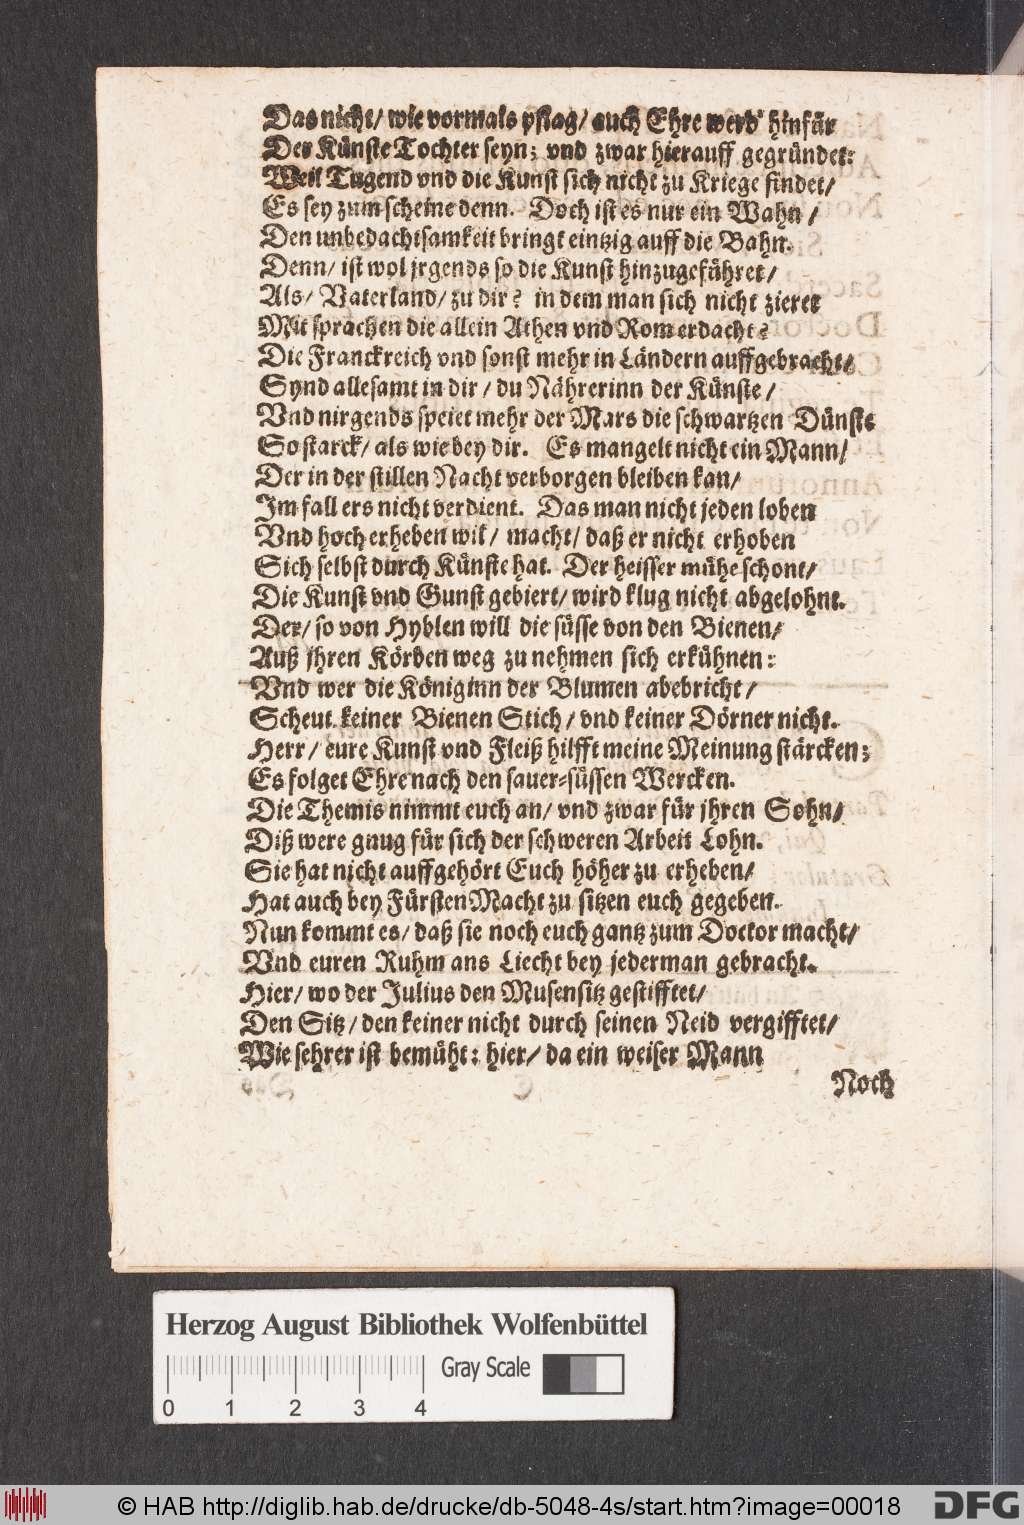 Das nicht/ wie vormals pflag/ auch Ehre werd' hinfür
Der Künste Tochter seyn; vnd zwar hierauff gegründet:
Weil Tugend vnd die Kunst sich nicht zu Kriege findet/
Es sey zum scheine denn. Doch ist es nur ein Wahn/
Den unbedachtsamkeit bringt eintzig auff die Bahn.
Denn/ ist wol jrgends so die Kunst hinzugeführet/
Als/ Vaterland/ zu dir? in dem man sich nicht zieret
Mit sprachen die allein Athen vnd Rom erdacht?
Die Franckreich vnd sonst mehr in Ländern auffgebracht/
Synd allesamt in dir/ du Nährerinn der Künste/
Vnd nirgends speiet mehr der Mars die schwartzen Dünste
So starck/ als wie bey dir. Es mangelt nicht ein Mann/
Der in der stillen Nacht verborgen bleiben kan/
Im fall ers nicht verdient. Das man nicht jeden loben
Vnd hoch erheben wil/ macht/ daß er nicht erhoben
Sich selbst durch Künste hat. Der heisser mühe schont/
Die Kunst vnd Gunst gebiert/ wird klug nicht abgelohnt.
Der/ so von Hyblen will die süsse von den Bienen/
Auß jhren Körben weg zu nehmen sich erkühnen:
Vnd wer die Königinn der Blumen abebricht/
Scheut keiner Bienen Stich/ vnd keiner Dörner nicht.
Herr/ eure Kunst vnd Fleiß hilfft meine Meinung stärcken;
Es folget Ehre nach den sauer-süssen Wercken.
Die Themis nimmt euch an/ vnd zwar für jhren Sohn/
Diß were gnug für sich der schweren Arbeit Lohn.
Sie hat nicht auffgehört Euch höher zu erheben/
Hat auch bey Fürsten Macht zu sitzen euch gegeben.
Nun kommt es/ daß sie noch euch gantz zum Doctor macht/
Vnd euren Ruhm ans Liecht bey jederman gebracht.
Hier/ wo der Julius den Musensitz gestifftet/
Den Sitz/ den keiner nicht durch seinen Neid vergifftet/
Wie sehr er ist bemüht: hier/ da ein weiser Mann
Noch
Herzog August Bibliothek Wolfenbüttel
Gray Scale
0 1 2 3 4
© HAB http://diglib.hab.de/drucke/db-5048-4s/start.htm?image=00018
DFG